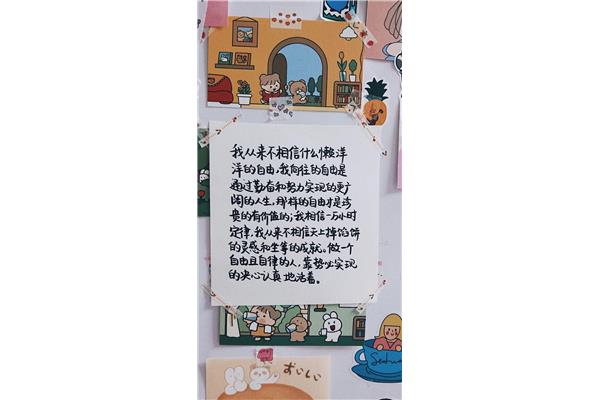 我从来不相信什么懒洋
洋的自由，我向往的自由是
通过勤奋和努力实现的更广
阔的人生，那样的自由才是珍
贵的有价值的；我相信一万小时
定律，我从来不相信天上掉馅饼
的灵感和坐等的成就。做一个
自由且自律的人，靠势必实现
的决心认真地活着。
おいしい